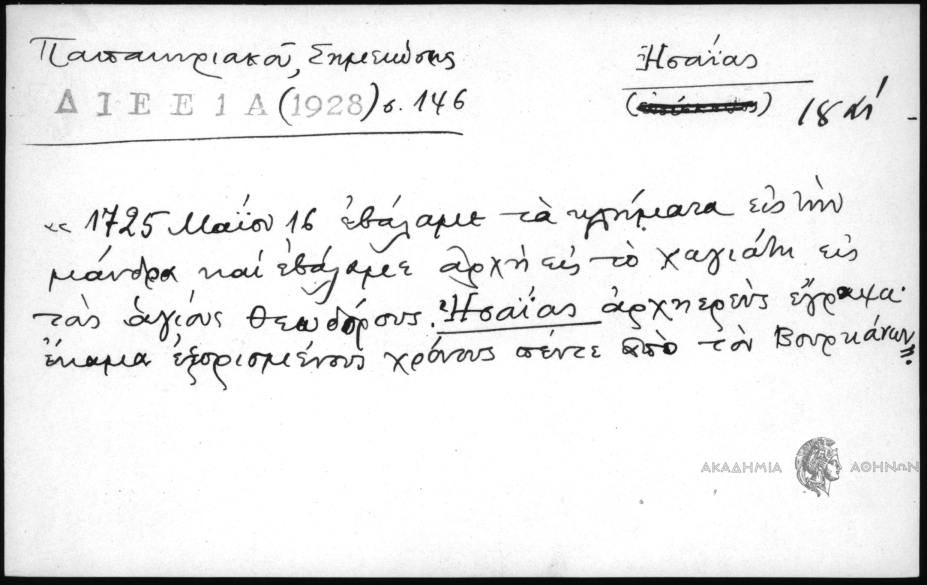 Παπακυριακοῦ, Σημειώσεις
Ἠσαΐας
ΔΙΕΕ 1Α (1928) σ. 146
18 αἰ.
« 1725 Μαΐου 16 ἐβάλαμε τὰ κλήματα εἰς τὴν
μάνδρα καὶ ἐβάλαμε ἀρχὴ εἰς τὸ χαγιάτι εἰς
τὰς ἁγίους Θεωδόρους. Ἠσαΐας ἀρχηερεὺς ἔγραψα·
ἔκαμα ἐξορισμένους χρόνους πέντε ἀπὸ τὸν Βουρκάνων
ΑΚΑΔΗΜΙΑ ΑΘΗΝΩΝ